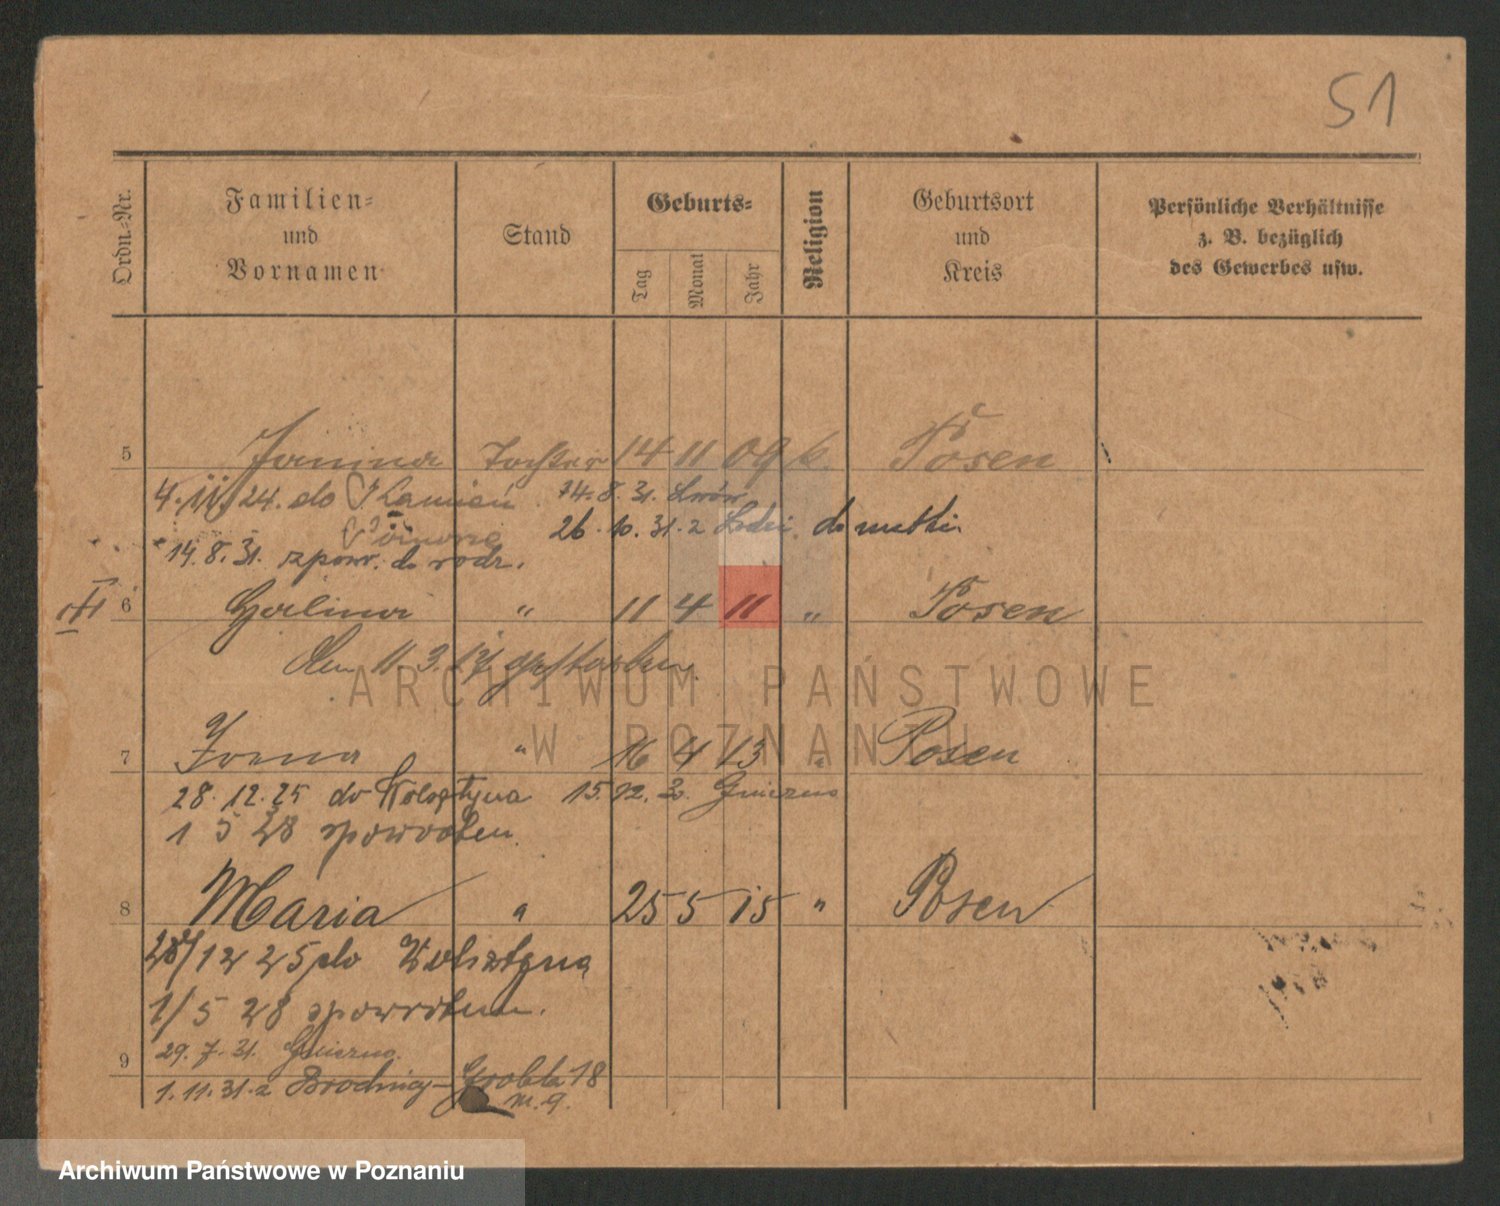 51
Ordn.-Nr.
Familien-
und
Vornamen
Stand
Geburts-
Tag
Monat
Jahr
Religion
Geburtsort
und
Kreis
Persönliche Verhältnisse
z. B. bezüglich
des Gewerbes usw.
5 Janina Tochter 14 11 09 k. Posen
4. 11. 24. do Kamień 14. 8. 31. Lwów
26. 10. 31. z Łodzi do matki.
14. 8. 31. z pow. do rodz.
III 6 Halina " 11 4 11 " Posen
Den 11 3. 17 gestorben.
ARCHIWUM PAŃSTWOWE
W POZNANIU
7 Irena " 16 4 13 " Posen
28. 12. 25 do Wolsztyna 15. 12. 30. Gniezno
1 5 28 spowrotem
8 Maria " 25 5 15 " Posen
28/12 25 do Wolsztyna
1/5 28 spowrotem.
29. 7. 31. Gniezno.
9
1. 11. 31. z Brodnicy - Grobla 18
m. 9.
Archiwum Państwowe w Poznaniu